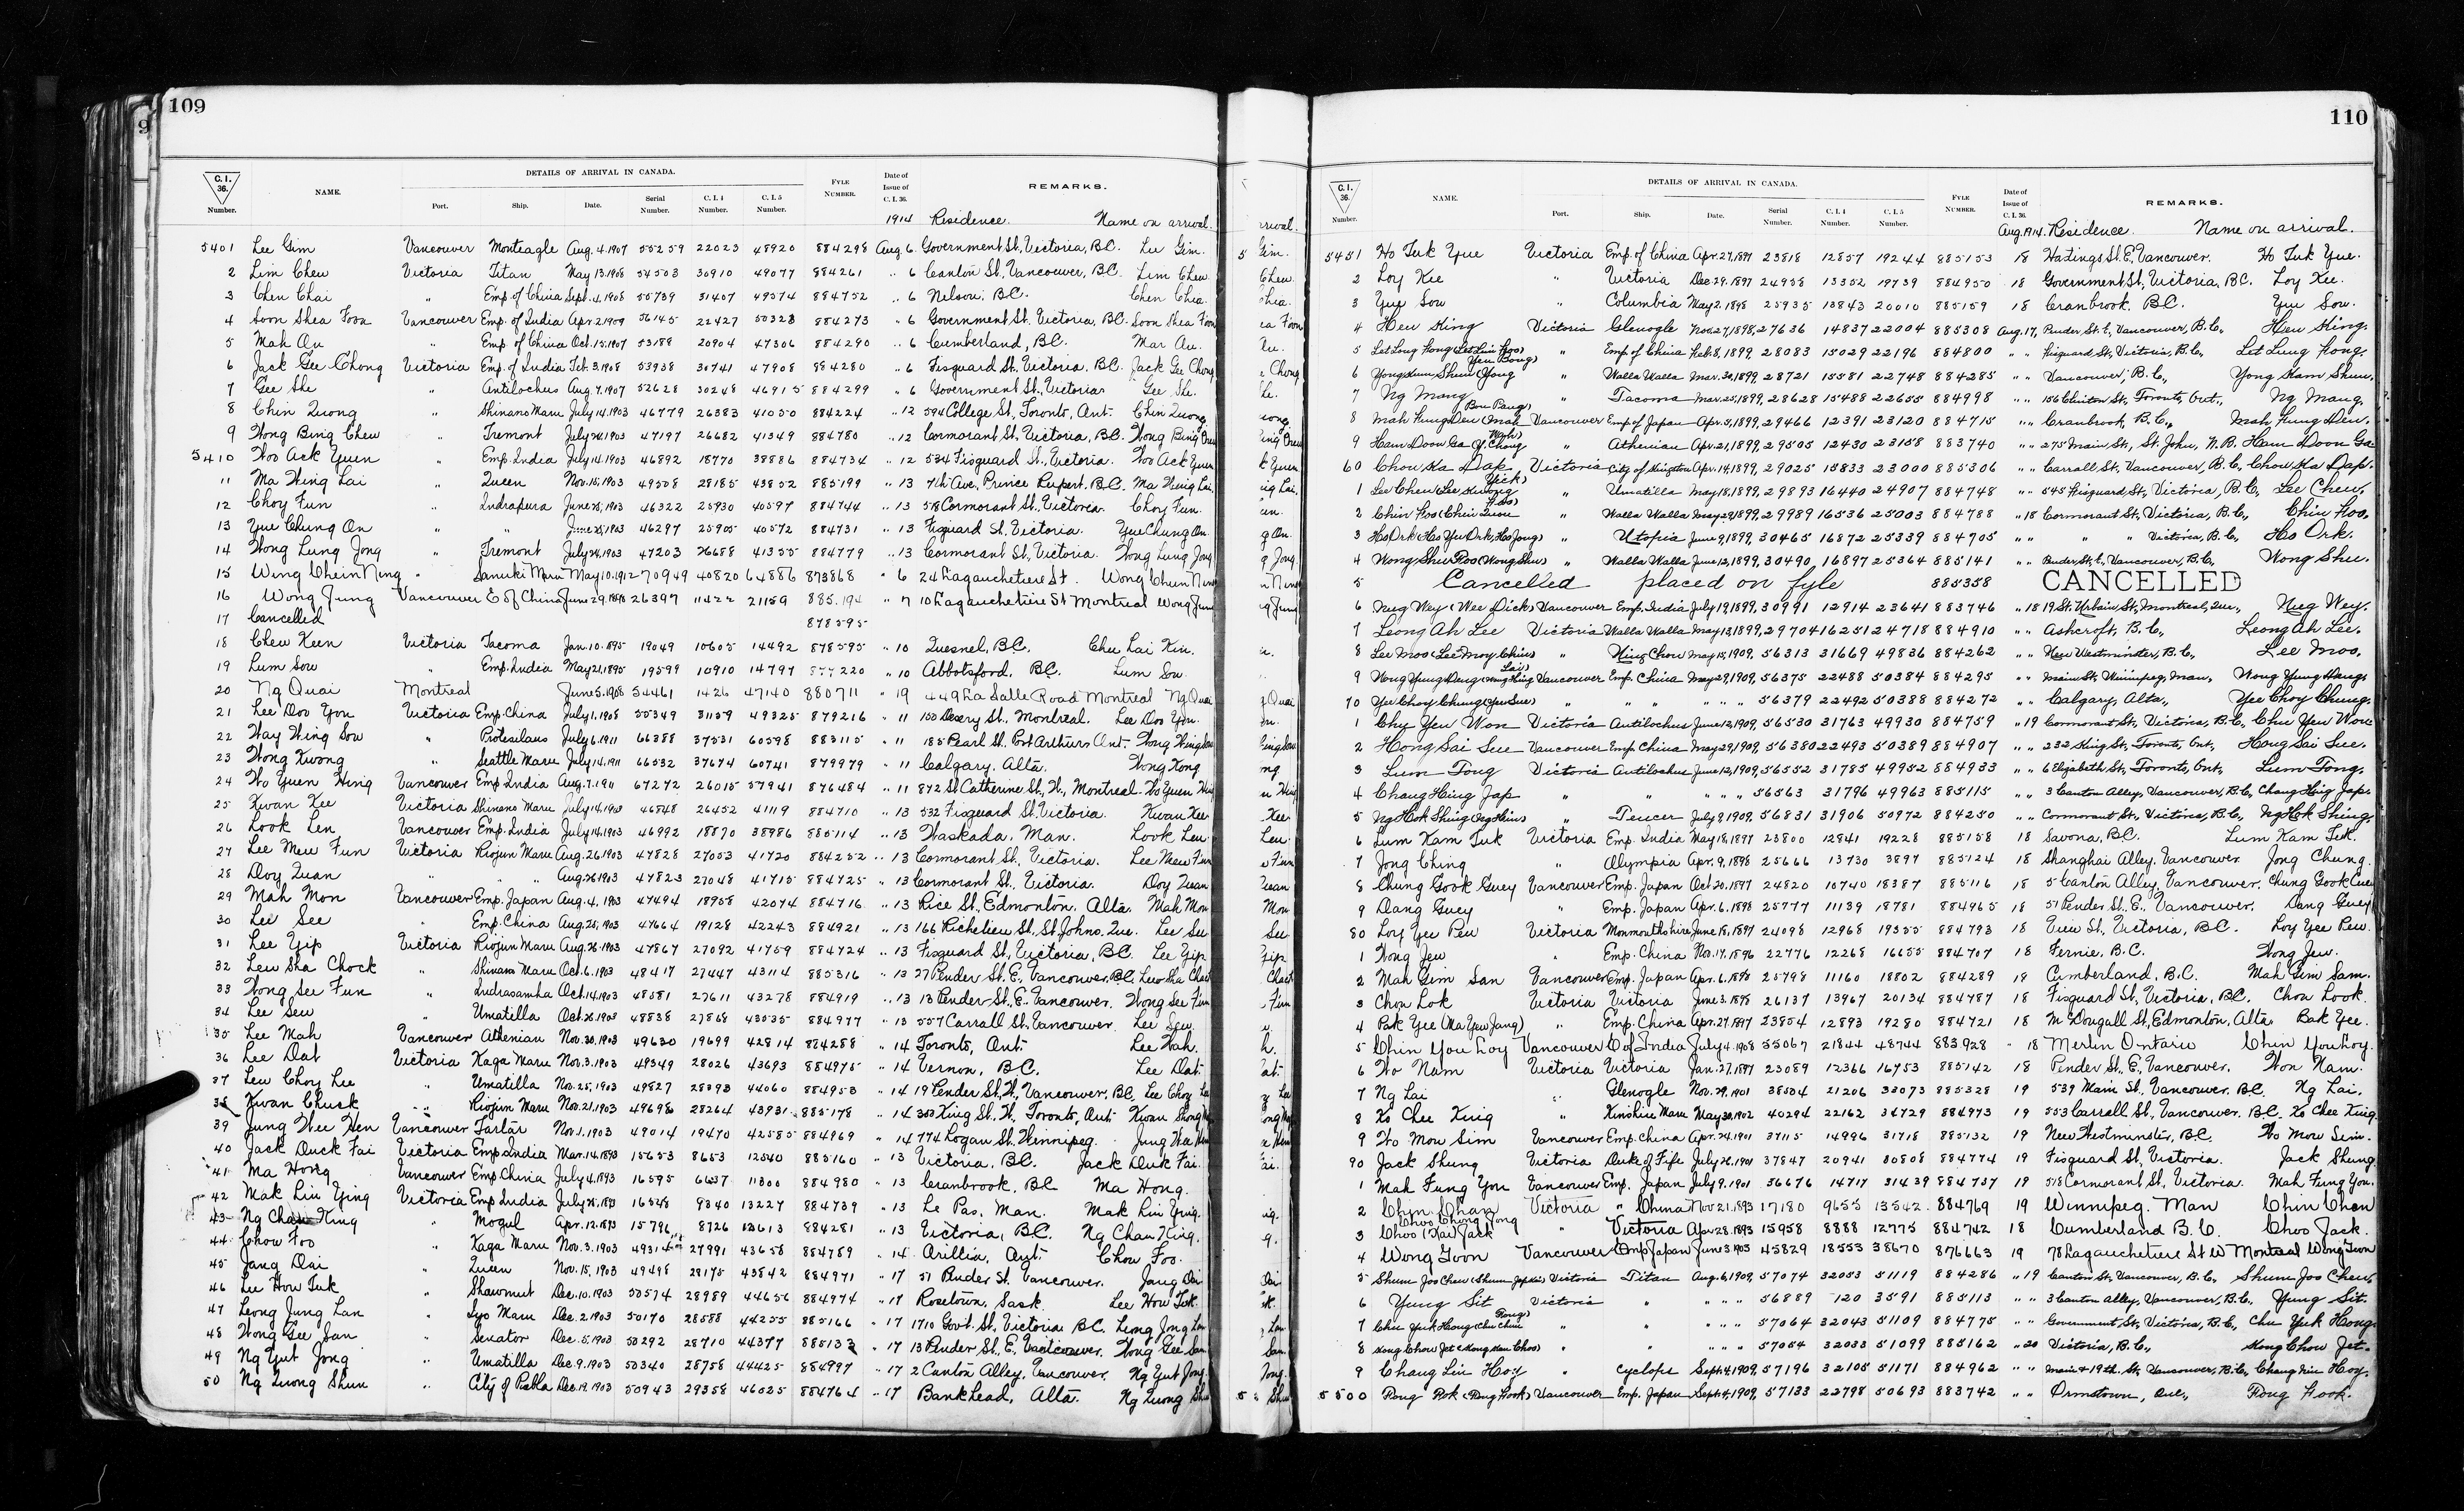 109
9
C. I. 36. Number.
NAME.
DETAILS OF ARRIVAL IN CANADA.
Port. Ship. Date. Serial Number. C. I. 4 Number. C. I. 5 Number.
FYLE NUMBER.
Date of Issue of C. I. 36.
REMARKS.
1914 Residence. Name on arrival.
5401 Lee Gim Vancouver Monteagle Aug. 4. 1907 55259 22023 48920 884298 Aug 6. Government St., Victoria, B.C. Lee Gim.
2 Lim Chew Victoria Titan May 13. 1908 54503 30910 49077 884261 " 6 Canton St., Vancouver, B.C. Lim Chew.
3 Chen Chai " Emp of China Sept. 4. 1908 55739 31407 49574 884752 " 6 Nelson, B.C. Chen Chea.
4 Soon Shea Foon Vancouver Emp. of India Apr. 2 1909 56145 22427 50323 884273 " 6 Government St. Victoria, B.C. Soon Shea Foon
5 Mah On " Emp of China Oct. 15. 1907 53189 20904 47306 884290 " 6 Cumberland, B.C. Mar Au.
6 Jack Gee Chong Victoria Emp. of India Feb. 3. 1908 53938 30741 47908 884280 " 6 Fisguard St. Victoria. B.C. Jack Gee Chong
7 Gee She " Antilochus Aug. 7. 1907 52628 30248 46915 884299 " 6 Government St., Victoria. Gee She.
8 Chin Quong " Shinano Maru July 14. 1903 46779 26383 41050 884224 " 12 594 College St., Toronto, Ont. Chin Quong
9 Wong Bing Chew " Tremont July 24. 1903 47197 26682 41349 884780 " 12 Cormorant St., Victoria, B.C. Wong Bing Chew
5410 Woo Ack Yuen " Emp. India July 14. 1903 46892 18770 38886 884734 " 12 534 Fisguard St., Victoria. Woo Ack Yuen
11 Ma Wing Lai " Queen Nov. 15, 1903 49508 28185 43852 885199 " 13 7th Ave., Prince Rupert. B.C. Ma Wing Lai.
12 Choy Fun " Indrapura June 28, 1903 46322 25930 40597 884744 " 13 578 Cormorant St., Victoria. Choy Fun.
13 Yue Chung On " " June 28, 1903 46297 25905 40572 884731 " 13 Fisguard St. Victoria. Yue Chung On.
14 Wong Lung Jong " Tremont July 24, 1903 47203 26688 41355 884779 " 13 Cormorant St., Victoria. Wong Lung Jong
15 Wing Chein Ning " Sanuki Maru May 10. 1912 70949 40820 64886 873868 " 6 24 Lagauchetiere St. Wong Chein Ning
16 Wong Jung Vancouver E of China June 29. 1898 26397 11422 21159 885.194 " 7 10 Lagauchetiere St Montreal Wong Jung
17 Cancelled 878595
18 Chew Keen Victoria Tacoma Jan. 10. 1895 19049 10605 14492 878595 " 10 Quesnel, B.C. Chu Lai Kin.
19 Lum Sow " Emp. India May 21, 1895 19599 10910 14797 220 " 10 Abbotsford, B.C. Lum Sow.
20 Ng Quai Montreal June 5. 1908 54461 1426 47140 880711 " 19 449 La Salle Road Montreal Ng Quai
21 Lee Doo You Victoria Emp. China July 1. 1908 55349 31159 49325 879216 " 11 150 Demery St., Montreal. Lee Doo You.
22 Way Wing Sow " Protesilaus July 6. 1911 66388 37531 60598 883115 " 11 185 Pearl St. Port Arthur, Ont. Wong Wing Sow
23 Wong Kwong " Seattle Maru July 14, 1911 66532 37674 60741 879979 " 11 Calgary. Alta. Wong Kong
24 Wo Yuen Hing Vancouver Emp. India Aug. 7. 1911 67272 26015 57941 876484 " 11 872 St Catherine St., W., Montreal. Wo Yuen Hing
25 Kwan Kee Victoria Shinano Maru July 14. 1903 46848 26452 41119 884710 " 13 532 Fisguard St. Victoria. Kwan Kee
26 Look Len Vancouver Emp. India July 14. 1903 46992 18870 38986 885114 " 13 Waskada, Man. Look Len
27 Lee Mew Fun Victoria Riojun Maru Aug. 26. 1903 47828 27053 41720 884252 " 13 Cormorant St., Victoria. Lee Mew Fun
28 Doy Quan " " " Aug. 26 1903 47823 27048 41715 884725 " 13 Cormorant St., Victoria. Doy Quan
29 Mah Mon Vancouver Emp. Japan Aug. 4. 1903 47494 18958 42074 884716 " 13 Rice St., Edmonton. Alta. Mah Mon
30 Lee See " Emp. China Aug. 25, 1903 47664 19128 42243 884921 " 13 166 Richelieu St., St. Johns, Que. Lee See
31 Lee Yip Victoria Riojun Maru Aug. 26. 1903 47867 27092 41759 884724 " 13 Fisguard St., Victoria, B.C. Lee Yip
32 Lew Sha Chock " Shinano Maru Oct. 6. 1903 48417 27447 43114 885316 " 13 27 Pender St. E., Vancouver, B.C. Lew Sha Chock
33 Wong See Fun " Indrasamha Oct. 14. 1903 48581 27611 43278 884919 " 13 13 Pender St., E., Vancouver. Wong See Fun
34 Lee Sew " Umatilla Oct. 26. 1903 48838 27868 43535 884977 " 13 557 Carrall St., Vancouver. Lee Sew.
35 Lee Mah Vancouver Athenian Nov. 30. 1903 49630 19699 42814 884288 " 14 Toronto, Ont. Lee Wah.
36 Lee Dat Victoria Kaga Maru Nov. 3. 1903 49349 28026 43693 884975 " 14 Vernon, B.C. Lee Dat.
37 Lew Choy Lee " Umatilla Nov. 25, 1903 49827 28393 44060 884953 " 14 19 Pender St., W., Vancouver, B.C. Lee Choy Lee
38 Kwan Chuck " " Riojun Maru Nov. 21. 1903 49698 28264 43931 885178 " 14 303 King St. W., Toronto, Ont. Kwan Shong
39 Jung Wee Hen Vancouver Tartar Nov. 1. 1903 49014 19470 42585 884969 " 14 774 Logan St. Winnipeg. Jung Wee Hen
40 Jack Duck Fai Victoria Emp. India Mar. 14. 1893 15653 8653 12540 885160 " 13 Victoria, B.C. Jack Duk Fai.
41 Ma Hong Vancouver Emp. China July 4. 1893 16595 6637 11300 884980 " 13 Cranbrook, B.C. Ma Hong.
42 Mak Lin Ying Victoria Emp. India July 25. 1893 16548 9340 13227 884739 " 13 Le Pas, Man. Mak Lin Ying.
43 Ng Chan King " Mogul Apr. 12. 1893 15796 8726 12613 884281 " 13 Victoria, B.C. Ng Chan King.
44 Chow Foo " Kaga Maru Nov. 3. 1903 49314 27991 43658 884789 " 14 Orillia, Ont. Chow Foo.
45 Jang Dai " Queen Nov. 15, 1903 49498 28175 43842 884971 " 17 51 Pender St. Vancouver. Jang Dai
46 Lee How Tuk " Shawmut Dec. 10. 1903 50574 28989 44656 884974 " 17 Rosetown, Sask. Lee How Tuk
47 Leong Jung Lan " Iyo Maru Dec. 2. 1903 50170 28588 44255 885166 " 17 1710 Govt. St., Victoria B.C. Leong Jong Lan
48 Wong Gee San " Senator Dec. 5. 1903 50292 28710 44377 885133 " 17 13 Pender St., E., Vancouver. Wong Gee San
49 Ng Yut Jong " Umatilla Dec. 9. 1903 50340 28758 44425 884997 " 17 2 Canton Alley, Vancouver. Ng Yut Jong.
50 Ng Quong Shun " City of Puebla Dec. 19. 1903 50943 29358 46025 884764 " 17 Bankhead, Alta. Ng Quong Shun
110
C. I. 36. Number.
NAME.
DETAILS OF ARRIVAL IN CANADA.
Port. Ship. Date. Serial Number. C. I. 4 Number. C. I. 5 Number.
FYLE NUMBER.
Date of Issue of C. I. 36.
REMARKS.
Aug. 1914. Residence. Name on arrival.
5451 Ho Tuk Yue Victoria Emp. of China Apr. 27. 1897 23818 12857 19244 885153 18 Hastings St. E., Vancouver. Ho Tuk Yue.
2 Loy Kee " Victoria Dec. 29. 1897 24958 13352 19739 884950 18 Government St., Victoria, B.C. Loy Kee.
3 Yue Sow " Columbia May 2. 1898 25935 13843 20010 885159 18 Cranbrook. B.C. Yue Sow.
4 Hew King Victoria Glenogle Nov. 27, 1898, 27636 14837 22004 885308 Aug. 17, Pender St. E., Vancouver, B.C., Hew King.
5 Let Long Kong (Let Lun Foo) " Emp of China Feb. 8, 1899, 28083 15029 22196 884800 " " Fisguard St., Victoria, B.C., Let Lung Kong.
6 Yong Kum Shun (Yong Yen Bong) " Walla Walla Mar. 30, 1899, 28721 15581 22748 884285 " " Vancouver, B.C., Yong Kam Shun.
7 Ng Mang " Tacoma Mar. 25, 1899, 28628 15488 22655 884998 " " 156 Clinton St., Toronto, Ont., Ng Mang.
8 Mah Fung Den (Mah Bon Pang) Vancouver Emp. of Japan Apr. 5, 1899, 29466 12391 23120 884715 " " Cranbrook, B.C., Mah Fung Den.
9 Ham Doon Ga (Y. Chong Wah) " Athenian Apr. 21, 1899, 29505 12430 23158 883740 " " 275 Main St., St. John, N.B. Ham Doon Ga
60 Chow Ka Dap, Victoria City of Kingston Apr. 14, 1899, 29025 15833 23000 885306 " " Carrall St., Vancouver, B.C., Chow Ka Dap.
1 Lee Chew (Lee Kwong Yick) " Umatilla May 18, 1899, 29893 16440 24907 884748 " " 545 Fisguard, St., Victoria, B.C., Lee Chew.
2 Chin Foo (Chin Quon Foo) " Walla Walla May 29, 1899, 29989 16536 25003 884788 " 18 Cormorant St., Victoria, B.C., Chin Foo.
3 Ho Ork (Ho Yu Ork, Ho Jong) " Utopia June 9, 1899, 30465 16872 25339 884705 " " " " Victoria, B.C., Ho Ork.
4 Wong Shu Foo (Wong Shu) " Walla Walla June 13, 1899, 30490 16897 25364 885141 " " Pender St. E., Vancouver, B.C., Wong Shu.
5 Cancelled placed on fyle 885358 CANCELLED
6 Nug Wey (Wee Dick) Vancouver Emp. India July 19, 1899, 30991 12914 23641 883746 " 18 19 St. Urbain St., Montreal, Que., Nug Wey.
7 Leong Ah Lee Victoria Walla Walla May 13, 1899, 29704 16251 24718 884910 " " Ashcroft, B.C., Leong Ah Lee.
8 Lee Moo (Lee Moy Chin) " Ning Chow May 15, 1909, 56313 31669 49836 884262 " " New Westminster, B.C., Lee Moo.
9 Wong Yung Hang (Wong Hing Lai) Vancouver Emp. China May 29, 1909, 56375 22488 50384 884295 " " Main St., Winnipeg, Man., Wong Yung Hang.
70 Yee Choy Chung (Yee Sue) " " " " " " 56379 22492 50388 884272 " " Calgary, Alta., Yee Choy Chung.
1 Chy Yen Won Victoria Antilochus June 12, 1909, 56530 31763 49930 884759 " 19 Cormorant St., Victoria, B.C., Chu Yen Won
2 Hong Sai Sue Vancouver Emp. China May 29, 1909, 56380 22493 50389 884907 " " 232 King St., Toronto, Ont., Hong Sai Sue.
3 Lum Tong Victoria Antilochus June 12, 1909, 56552 31785 49952 884933 " " 6 Elizabeth St., Toronto, Ont., Lum Tong.
4 Chang Hing Jap " " " " " 56563 31796 49963 885115 " " 3 Canton Alley, Vancouver, B.C., Chang Hing Jap.
5 Ng Hok Shing (Ng Hin) " Teucer July 9, 1909, 56831 31906 50972 884250 " " Cormorant St., Victoria, B.C., Ng Hok Shing.
6 Lum Kam Tuk Victoria Emp. India May 18, 1897 23800 12841 19228 885158 18 Savona, B.C. Lum Kam Tuk.
7 Jong Ching " Olympia Apr. 9. 1898 25666 13730 3897 885124 18 Shanghai Alley. Vancouver Jong Chung.
8 Chung Gook Guey Vancouver Emp. Japan Oct. 20. 1897 24820 10740 18387 885116 18 5 Canton Alley, Vancouver. Chung Gook Guey
9 Dang Guey " Emp. Japan Apr. 6. 1898 25777 11139 18781 884965 18 51 Pender St., E., Vancouver. Dang Guey
80 Loy Yee Pew Victoria Monmouthshire June 18, 1897 24098 12968 19355 884793 18 View St., Victoria, B.C. Loy Yee Pew.
1 Wong Jew " Emp. China Nov. 17. 1896 22776 12268 16655 884707 18 Fernie, B.C. Wong Jew.
2 Mah Gim San Vancouver Emp. Japan Apr. 6. 1898 25798 11160 18802 884289 18 Cumberland, B.C. Mah Gim Sam.
3 Chow Lok Victoria Victoria June 3. 1898 26137 13967 20134 884787 18 Fisguard St., Victoria, B.C. Chow Look.
4 Pak Yee (Ma Yew Jang) " Emp. China Apr. 27. 1897 23854 12893 19280 884721 18 McDougall St., Edmonton, Alta. Bak Yee.
5 Chin You Loy Vancouver E of India July 4. 1908 55067 21844 48744 883928 " 18 Merlin Ontario Chin You Loy.
6 Wo Nam Victoria Victoria Jan. 27. 1897 23089 12366 16753 885142 18 Pender St., E., Vancouver. Won Nam.
7 Ng Lai " Glenogle Nov. 29, 1901 38504 21206 33073 885328 19 539 Main St., Vancouver. B.C. Ng Lai.
8 Ko Chee King " Kinshiu Maru May 30, 1902 40294 22162 34729 884973 19 553 Carrall St., Vancouver. B.C. Ko Chee King.
9 Wo Mow Sim Vancouver Emp. China Apr. 24. 1901 37115 14996 31718 885132 19 New Westminster, B.C. Wo Mow Sim.
90 Jack Shung Victoria Duke of Fife July 26. 1901 37847 20941 30808 884774 19 Fisguard St., Victoria. Jack Shung
1 Mah Fung You Vancouver Emp. Japan July 9. 1901 36676 14717 31439 884737 19 518 Cormorant St., Victoria. Mah Fung You.
2 Chin Chan Victoria " China Nov 21. 1893 17180 9655 13542 884769 19 Winnipeg. Man Chin Chan
Choo Chung Yong
3 Choo (Kai) Jack Victoria Apr. 28. 1893 15958 8888 12775 884742 18 Cumberland B.C. Choo Jack.
4 Wong Toon Vancouver Emp Japan June 3 1903 45829 18553 38670 876663 19 78 Lagauchetiere St W Montreal Wong Toon
5 Shum Joo Chew (Shum Jop Kai) Victoria Titan Aug. 6, 1909, 57074 32053 51119 884286 " 19 Canton St., Vancouver, B.C., Shum Joo Chew.
6 Yung Sit Victoria " " " " 56889 120 3591 885113 " " 3 Canton Alley, Vancouver, B.C., Yung Sit.
7 Chu Yuk Hong (Chu Chin Fong) " " " " " 57064 32043 51109 884775 " " Government St., Victoria, B.C., Chu Yuk Hong.
8 Kong Chow Jet (Kong Kun Choo) " " " " " 57054 32033 51099 885162 " 20 Victoria, B.C., Kong Chow Jet.
9 Chang Lin Hoy " Cyclops Sept. 4, 1909, 57196 32105 51171 884962 " " Main & 19th. St., Vancouver, B.C., Chang Lin Hoy.
5500 Fong Fok (Fong Fook) Vancouver Emp. Japan Sept. 4, 1909, 57133 22798 50693 883742 " " Ormstown, Que., Fong Fook.